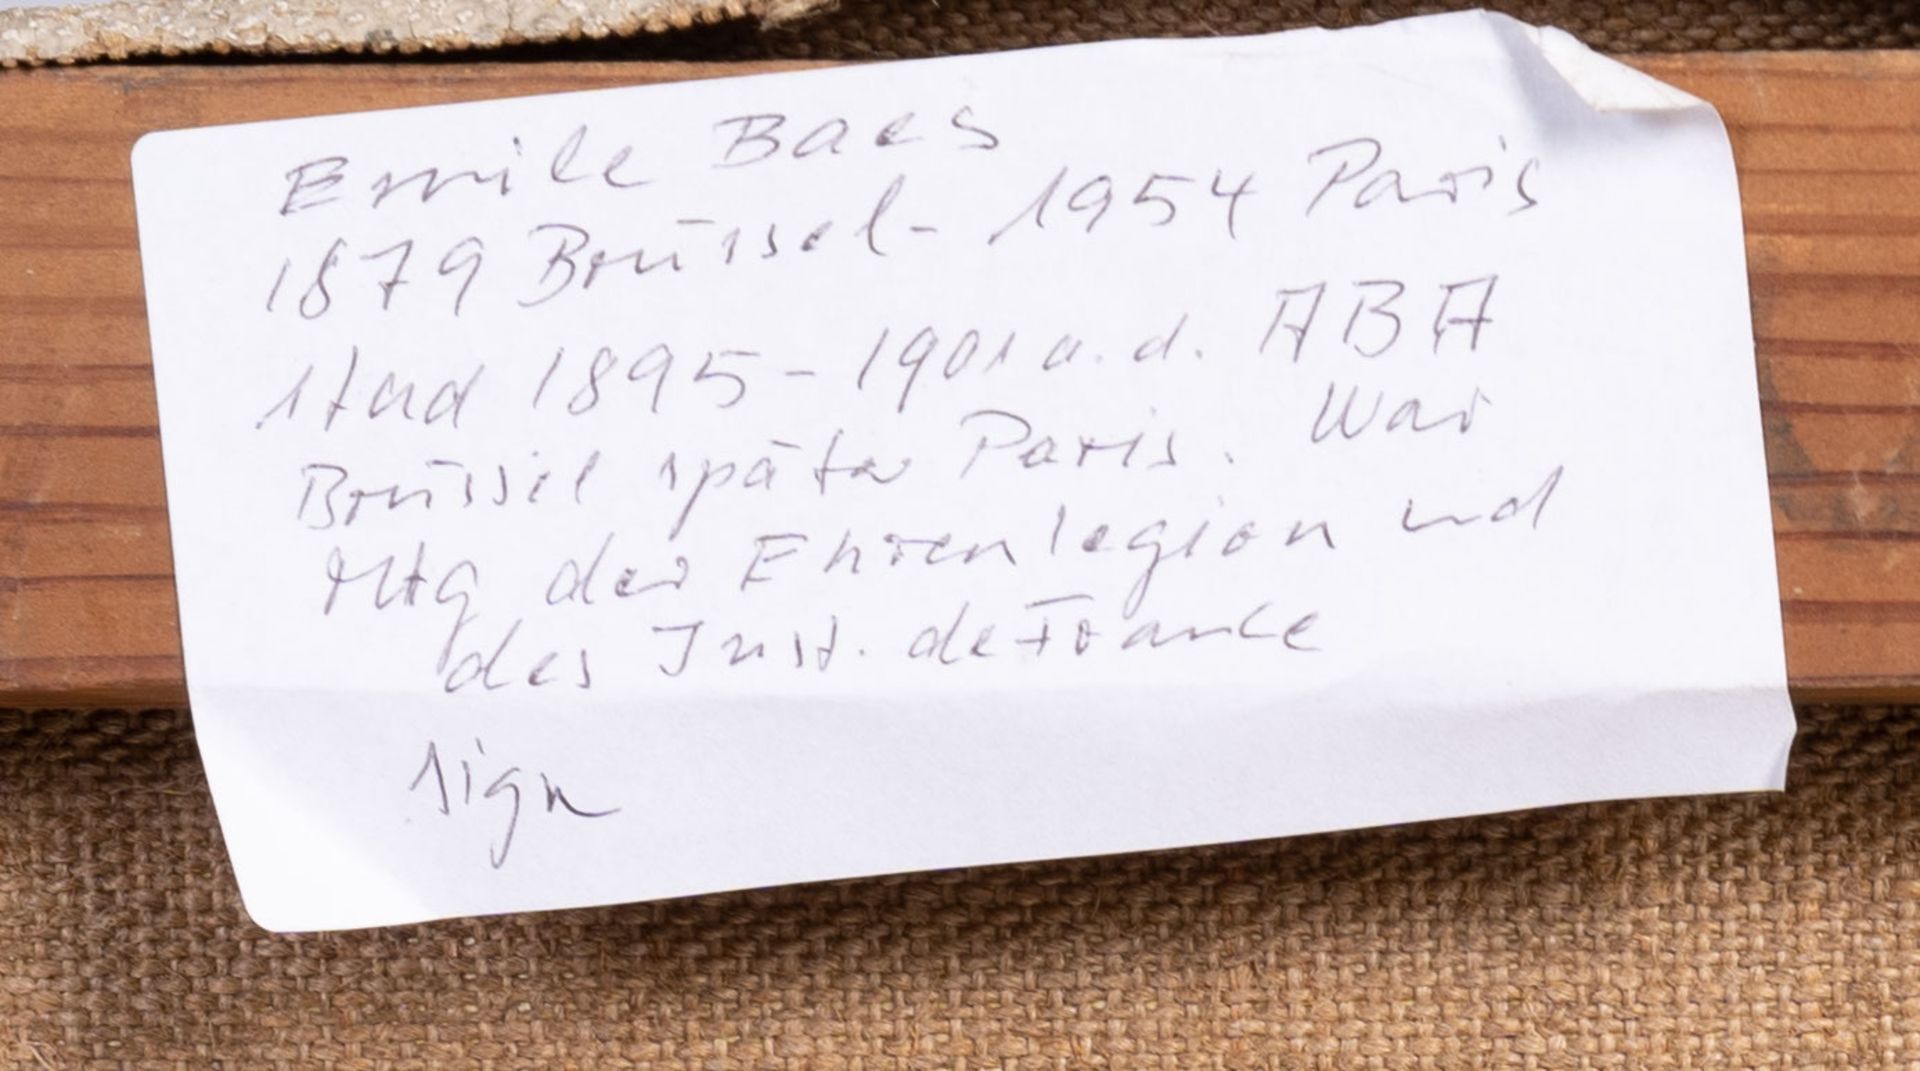 Emile Baes
1879 Brüssel - 1954 Paris
stud 1895 - 1901 a. d. ABA
Brüssel später Paris. War
Mtg der Ehrenlegion und
des Inst. de France
sign